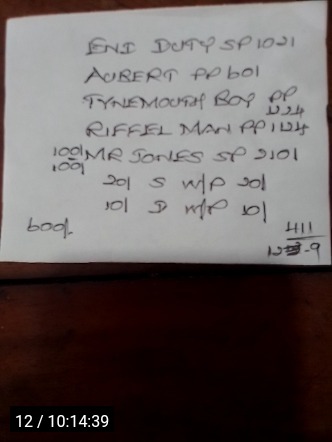 END DUTY SP 1021
AUBERT PP 601
TYNEMOUTH BOY PP 1224
RIFFEL MAN PP 1124
100/ 100/ MR JONES SP 2101
20/ S W/P 20/
10/ D W/P 10/
600/.
411
12 -9
12 / 10:14:39